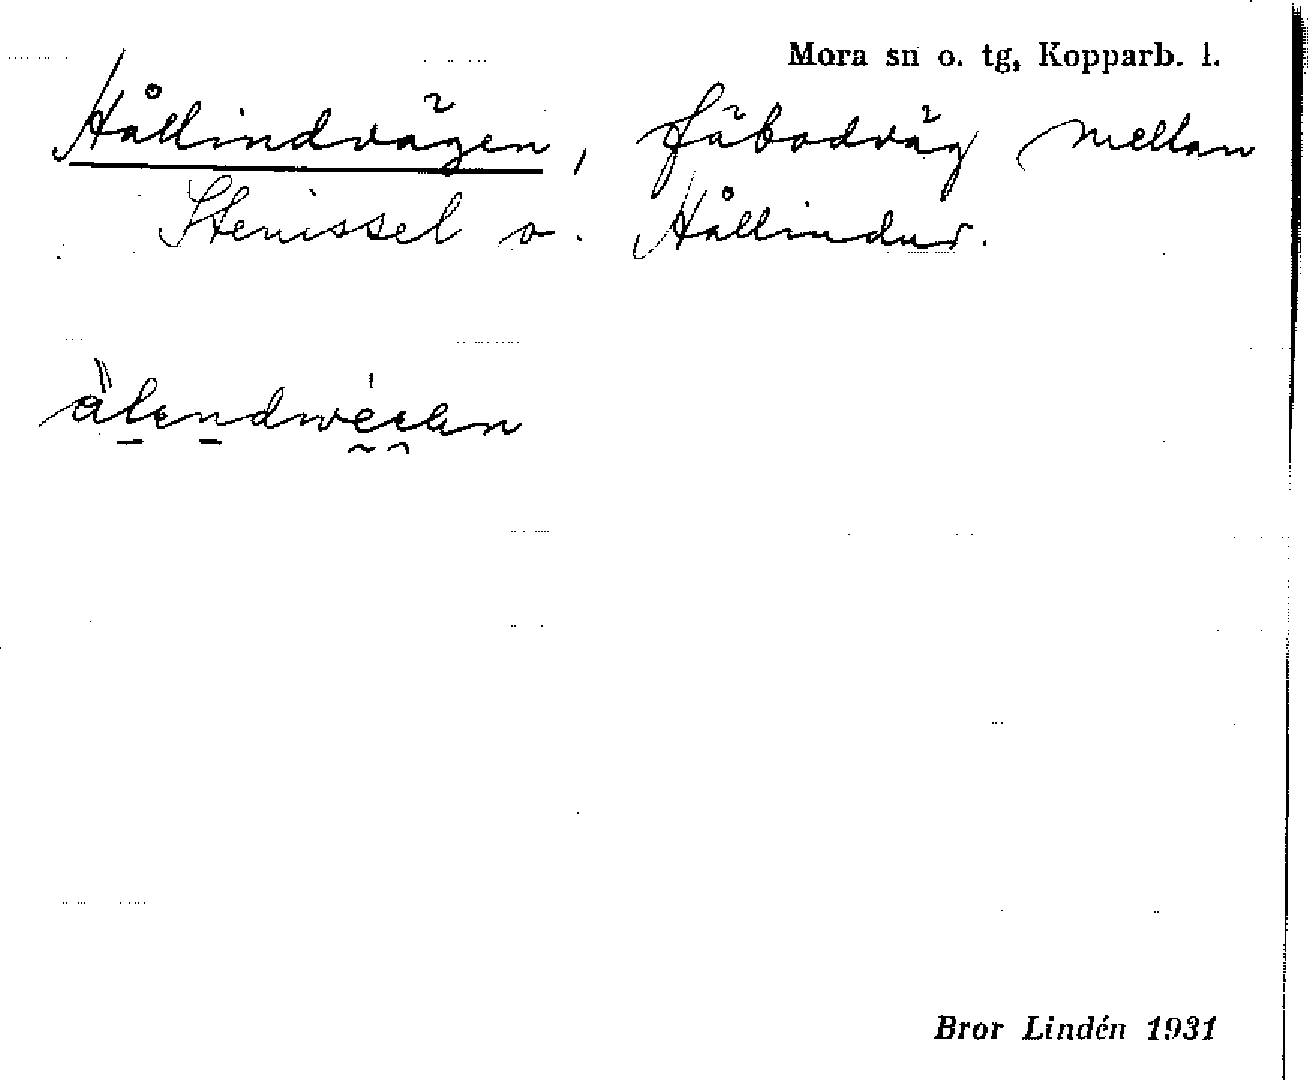 Mora sn o. tg, Kopparb. l.
Hållindvägen, fäbodväg mellan
Stenissel o. Hållindur.
Bror Lindén 1931